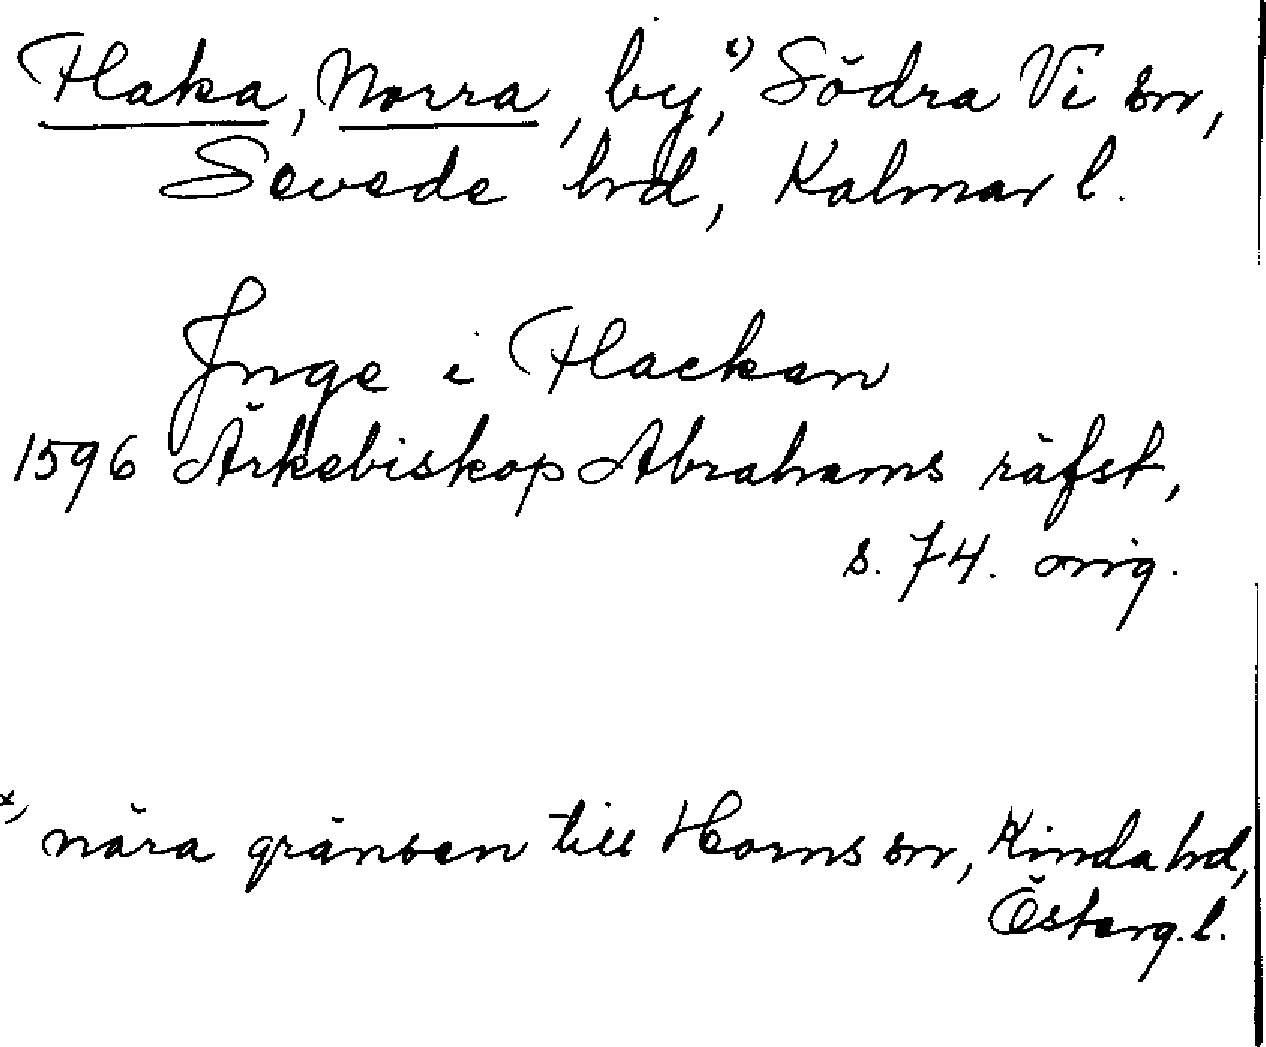 Flaka, Norra, by,ˣ⁾ Södra Vi sn,
Sevede hd, Kalmar l.
Inge i Flackan
1596 Ärkebiskop Abrahams räfst,
s. 74. orig.
ˣ⁾ nära gränsen till Horns sn, Kinda hd,
Österg. l.